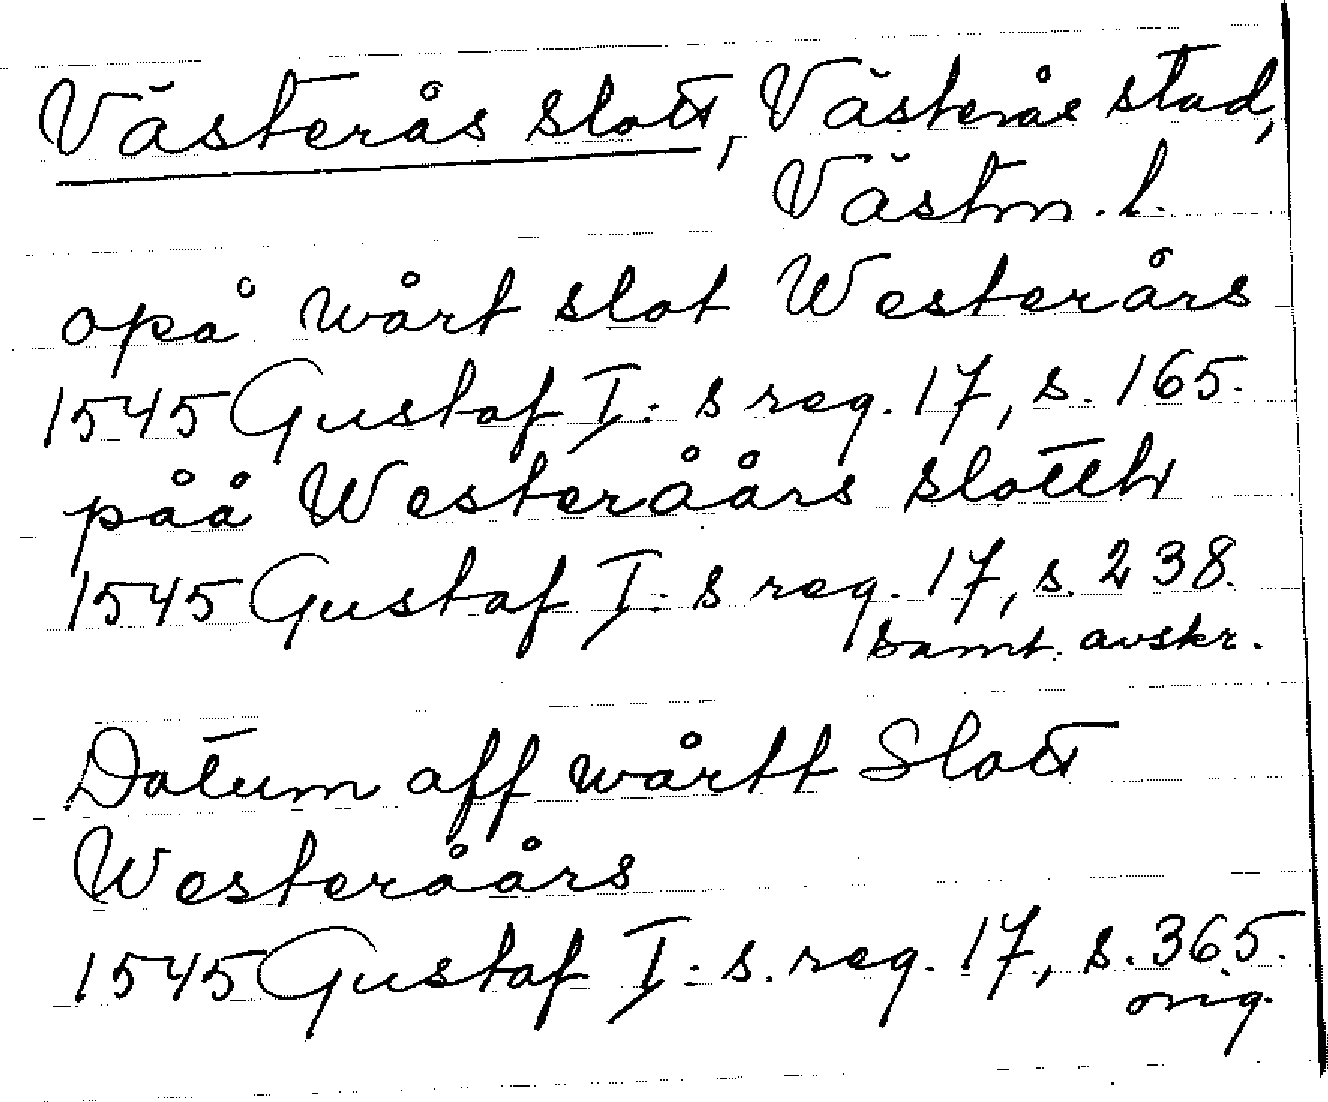 Västerås slott, Västerås stad,
Västm. l.
opå wårt slot Westerårs
1545 Gustaf I:s reg. 17, s. 165.
påå Westeråårs slotth
1545 Gustaf I:s reg. 17, s. 238.
samt. avskr.
Datum aff wårtt Slott
Westeråårs
1545 Gustaf I:s. reg. 17, s. 365.
orig.